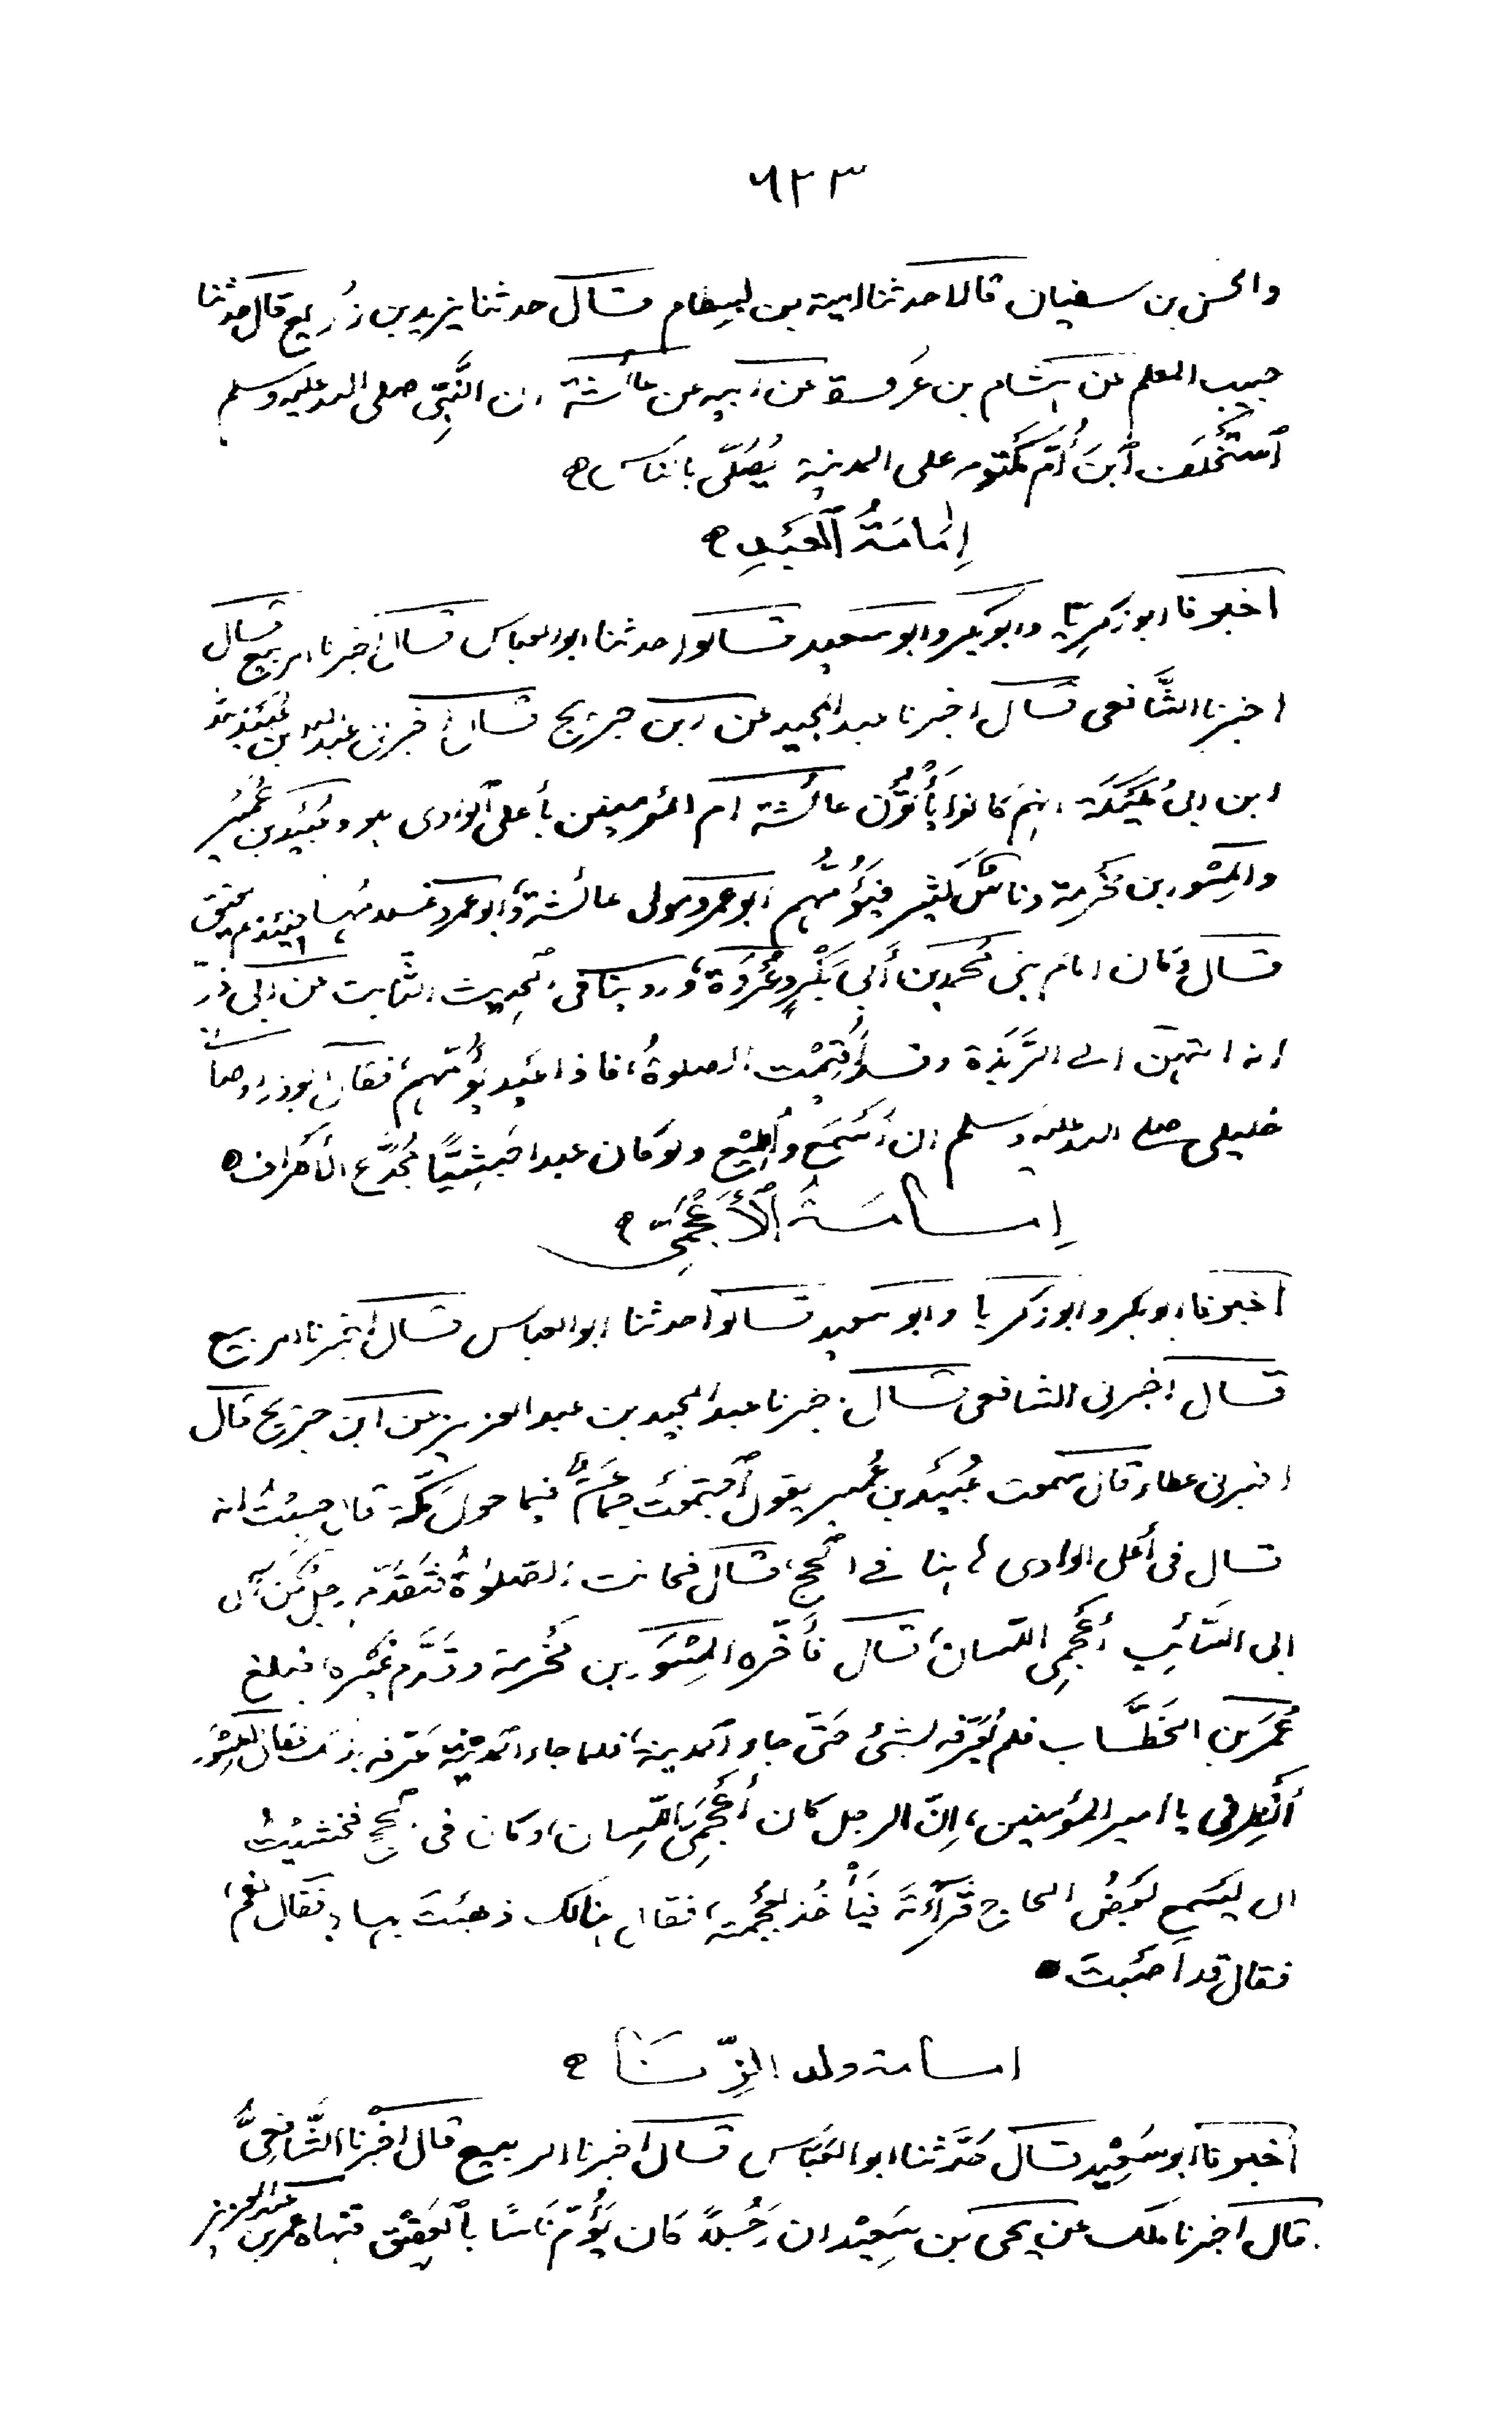 ٦٢٣
والحسن بن سفيان قالا حدثنا امية بن بسطام قال حدثنا يزيد بن زُريع قال حدثنا
حبيب المعلم عن هشام بن عروة عن ابيه عن عائشة ان النَّبِيّ صلى الله عليه وسلم
ٱستَخْلَفَ ٱبنَ أُمِّ مَكْتُوم على المدينة يُصَلّى بالناس
إِمَامَةُ ٱلعَبْدِ
اخبرنا ابو زكريّا وابو بكر وابو سعيد قالوا حدثنا ابو العباس قال اخبرنا الربيع قال
اخبرنا الشَّافعى قال اخبرنا عبد المجيد عن ابن جريج قال اخبرنى عبد الله بن عُبَيْد الله
ابن ابى مُلَيْكَة انهم كانوا يَأْتُوْن عائشة ام المؤمنين بأعلى ٱلوادى هو وعُبَيْد بن عُمَيْر
والمِسْوَر بن مَخْرمة وناسٌ كَثِير فَيَؤُمُّهم ابو عمرو مولى عائشة، وابو عمرو غلامها حينئذ لم يعتق
قال وكان امام بنى محمد بن أَبى بَكْرٍ وعُرْوَة، وروينا فى الحديث الثَّابت عن ابى ذرّ
انه انتهى الى الرَّبَذَة وقد أُقِيْمَت الصلوةُ، فاذا عَبْد يَؤُمّهم، فقال ابو ذر اوصانى
خليلى صلى الله عليه وسلم ان أَسْمَع وأُطِيْع ولو كان عبدا حَبَشِيًّا مُجَدَّع الأطراف
إمامَةُ ٱلأَعْجَمِىّ
اخبرنا ابو بكر وابو زكريا وابو سعيد قالوا حدثنا ابو العباس قال اخبرنا الربيع
قال اخبرنى الشافعى قال اخبرنا عبد المجيد بن عبد العزيز عن ابن جريج قال
اخبرنى عطاء قال سمعت عُبَيْد بن عُمير يقول ٱجتمعَت جماعَةٌ فيما حول مكّة قال حسبتُ انه
قال فى أعلى الوادى ههنا فى الحج، قال فحانت الصلوةُ فتَقَدَّم رجل من آل
ابى السَّائِب أعْجَمِى اللسان، قال فأخّره المِسْوَر بن مَخْرمة وقَدَّم غَيْره، فبلغ
عُمَرَ بن الخَطَّاب فلم يُعَرّفه بشئ حَتَّى جاء ٱلمدينة، فلما جاء ٱلمدينة عرّفه بذلك فقال المِسْوَر
أَنْظِرنى يا امير المؤمنين، إنّ الرجل كان أَعْجَمِىَّ اللّسان، وكان فى الحج فخشيتُ
ان يسمع بَعضُ الحاج قِرَآءَتَه فيَأْخُذ بعُجْمته، فقال هنالك ذهبْتَ بها، فقال نعم،
فقال قد اصَبتَ
امامة ولد الزِّنَا
اخبرنا ابو سَعِيْد قال حَدَّثنا ابو العَبَّاس قال اخبرنا الربيع قال اخْبرنا الشَّافِعِىُّ
قال اخبرنا ملك عن يحى بن سَعِيْد ان رَجُلاً كان يَؤُمّ نَاسًا بٱلعَقِيْق فنهاه عمر بن عبد العزيز